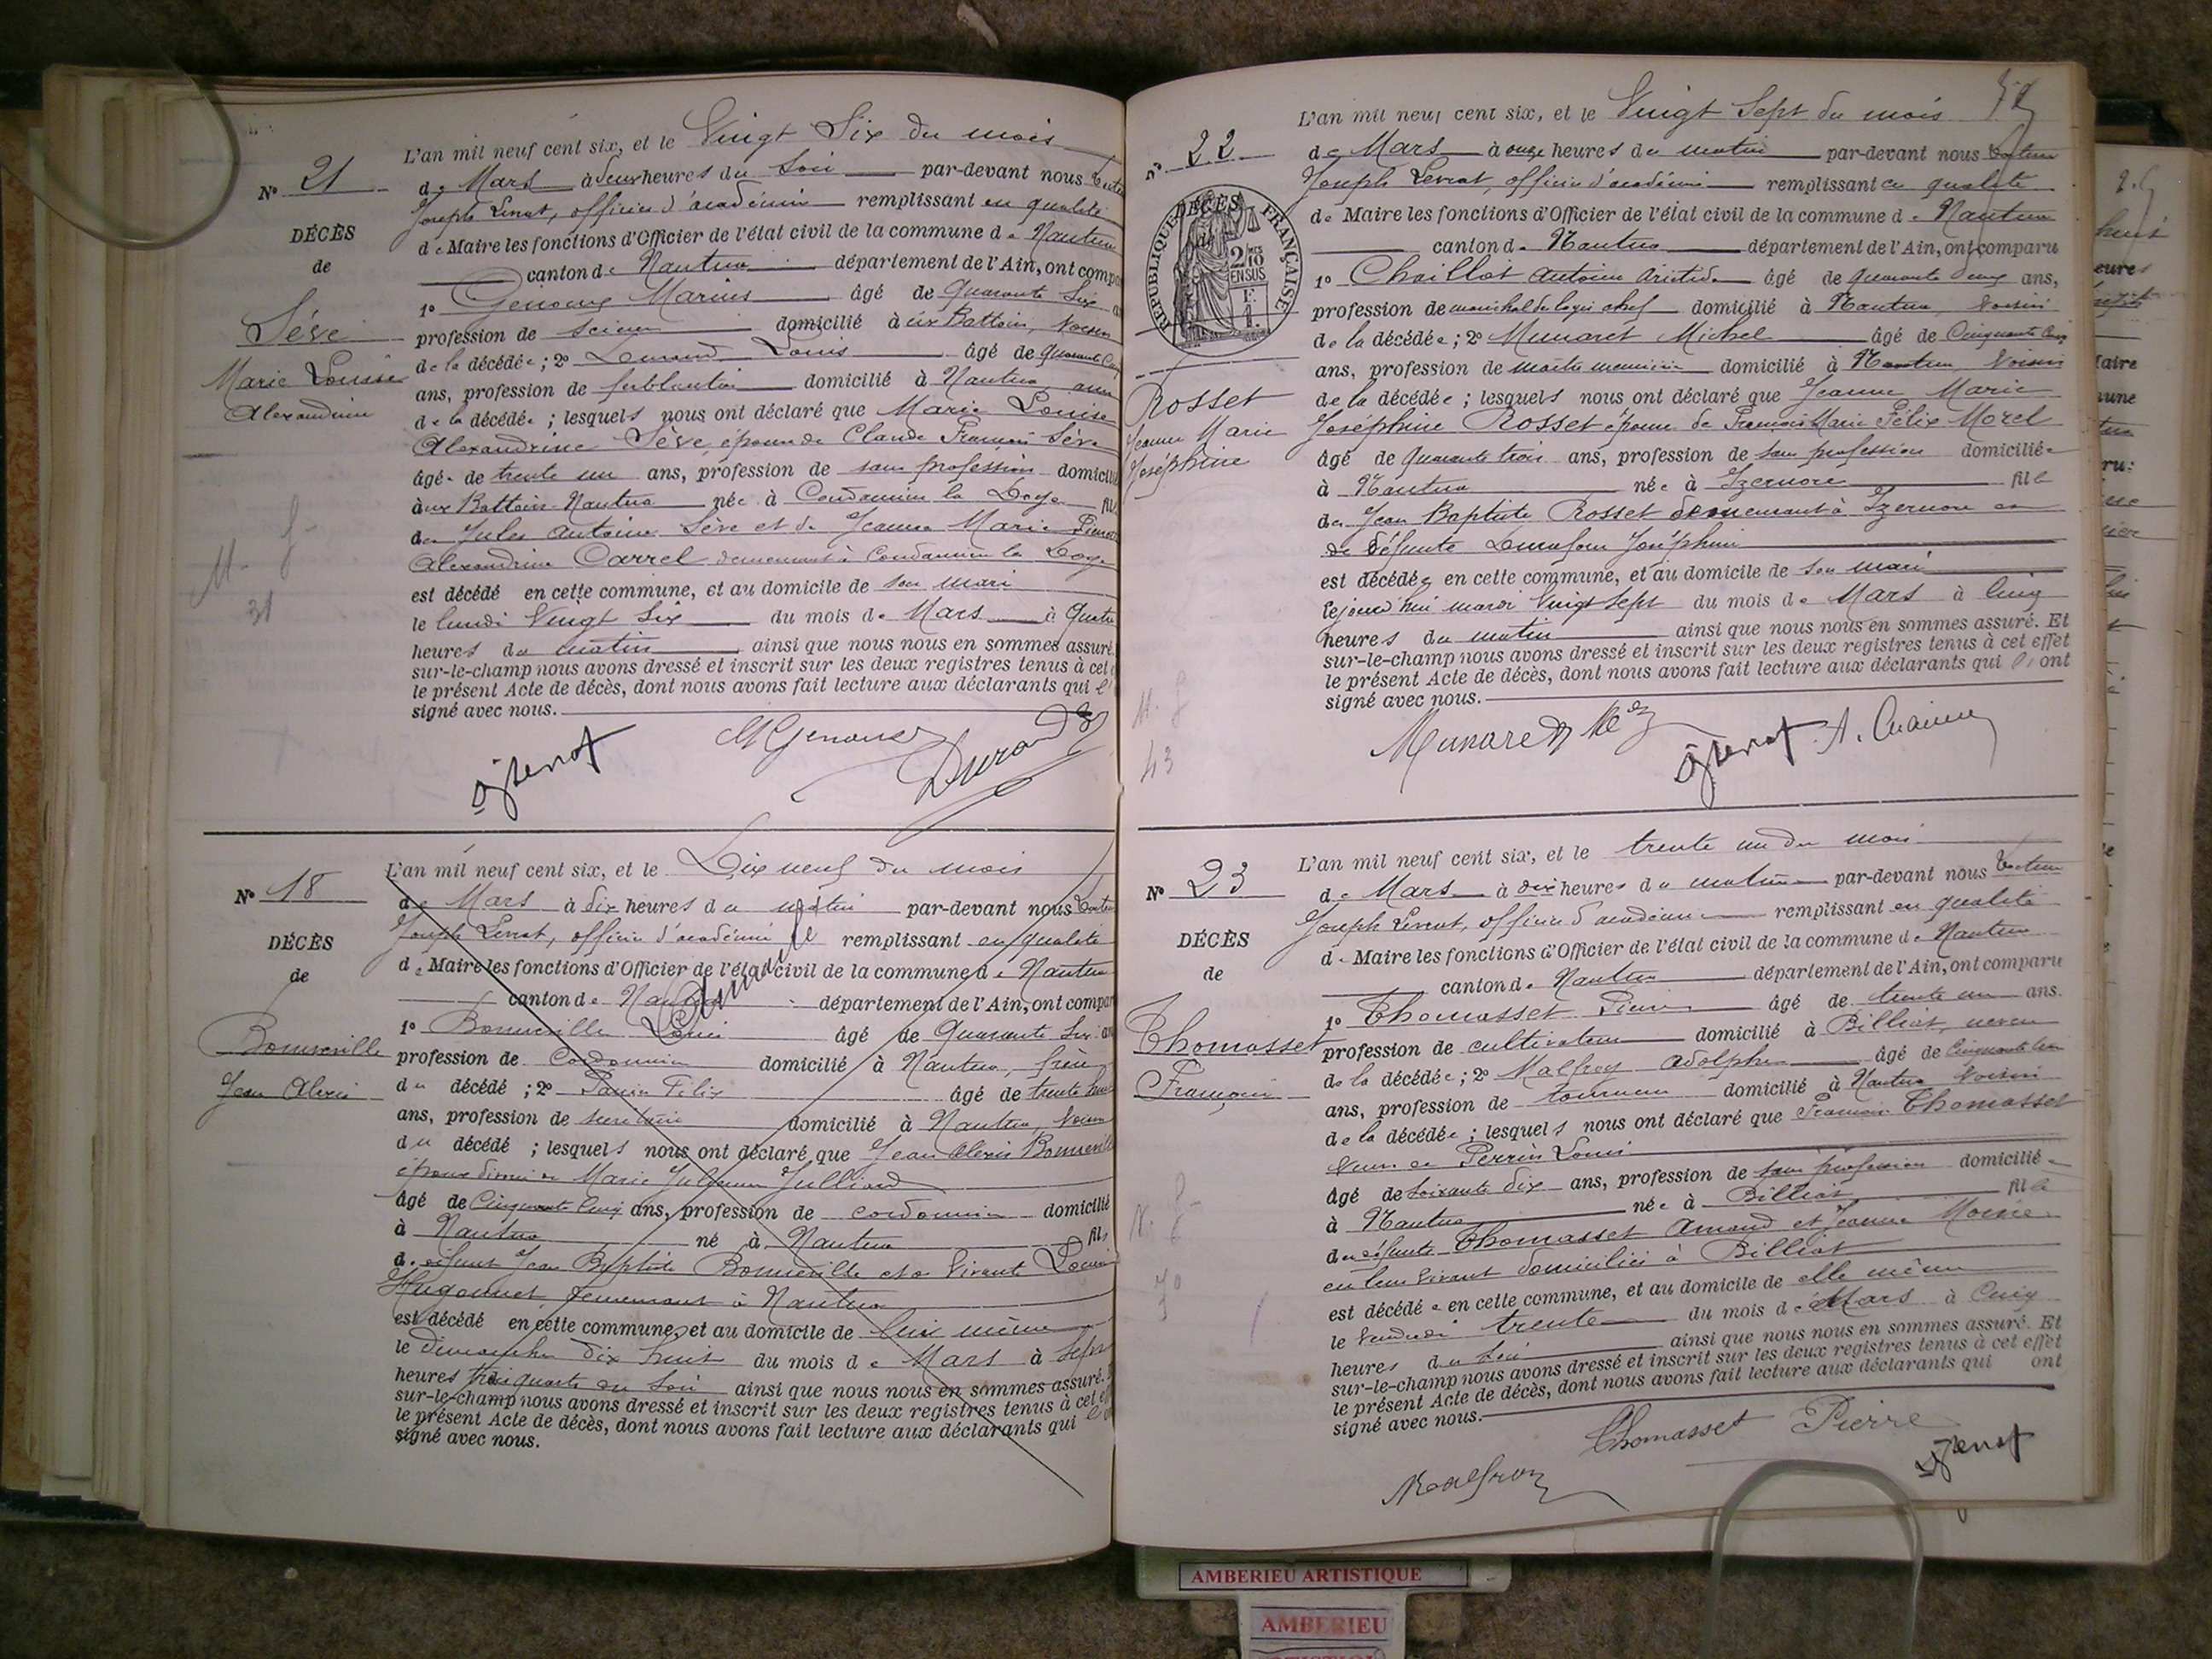 L'an mil neuf cent six, et le Vingt Six du mois
N° 21
de Mars à deux heures du Soir par-devant nous
Joseph Levrat, officier d'académie remplissant en qualité
DÉCÈS
de Maire les fonctions d'Officier de l'état civil de la commune de Nantua
de
canton de Nantua département de l'Ain, ont compa
1° Genoux Marius âgé de Quarante Six
Sève
profession de scieur domicilié aux Battoirs, Voisin
de la décédée ; 2° Louis âgé de Quarante
Marie Louise
ans, profession de ferblantier domicilié à Nantua
Alexandrine
de la décédée ; lesquels nous ont déclaré que Marie Louise
Alexandrine Sève, épouse de Claude François Sève
âgée de trente un ans, profession de sans profession domicili
aux Battoirs-Nantua née à Condamine la Doye fil
de Jules Antoine Sève et de Jeanne Marie
Alexandrine Carrel demeurant à Condamine la Doye
est décédé en cette commune, et au domicile de son mari
31
le lundi Vingt Six du mois de Mars à Quatre
heures du matin ainsi que nous nous en sommes assuré.
sur-le-champ nous avons dressé et inscrit sur les deux registres tenus à cet
le présent Acte de décès, dont nous avons fait lecture aux déclarants qui l'
signé avec nous.
MGenoux
Durand
L'an mil neuf cent six, et le Dix neuf du mois
N° 18
de Mars à dix heures du matin par-devant nous
Joseph Levrat, officier d'académie remplissant en qualité
DÉCÈS
de Maire les fonctions d'Officier de l'état civil de la commune de Nantua
de
Annulé
canton de Nantua département de l'Ain, ont compar
1° Bonneville Louis âgé de Quarante Six an
Bonneville
profession de Cordonnier domicilié à Nantua, frère
Jean Alexis
du décédé ; 2° Félix âgé de trente
ans, profession de secrétaire domicilié à Nantua, Voisin
du décédé ; lesquels nous ont déclaré que Jean Alexis Bonneville
époux divorcé de Marie Julliard
âgé de Cinquante Cinq ans, profession de cordonnier domicilié
à Nantua né à Nantua fils
de défunt Jean Baptiste Bonneville et de Vivante Louise
Hugonnet demeurant à Nantua
est décédé en cette commune, et au domicile de lui même
le dimanche dix huit du mois de Mars à Sept
heures trois quarts du Soir ainsi que nous nous en sommes assuré.
sur-le-champ nous avons dressé et inscrit sur les deux registres tenus à cet
le présent Acte de décès, dont nous avons fait lecture aux déclarants qui
signé avec nous.
L'an mil neuf cent six, et le Vingt Sept du mois
N° 22
de Mars à onze heures du matin par-devant nous Docteur
Joseph Levrat, officier d'académie remplissant en qualité
de Maire les fonctions d'Officier de l'état civil de la commune de Nantua
RÉPUBLIQUE FRANÇAISE
DÉCÈS
de
2/10 EN SUS
canton de Nantua département de l'Ain, ont comparu
1° Chaillot Antoine Aristide âgé de Quarante cinq ans,
profession de maréchal des logis chef domicilié à Nantua, Voisin
de la décédée ; 2° Munaret Michel âgé de Cinquante Cinq
ans, profession de maître menuisier domicilié à Nantua Voisin
Rosset
de la décédée ; lesquels nous ont déclaré que Jeanne Marie
Jeanne Marie
Joséphine Rosset épouse de François Marie Félix Morel
Joséphine
âgé de Quarante trois ans, profession de sans profession domiciliée
à Nantua née à Izernore fille
de Jean Baptiste Rosset demeurant à Izernore
de défunte Joséphine
est décédée en cette commune, et au domicile de son mari
cejourd'hui mardi Vingt Sept du mois de Mars à Cinq
heures du matin ainsi que nous nous en sommes assuré. Et
sur-le-champ nous avons dressé et inscrit sur les deux registres tenus à cet effet
le présent Acte de décès, dont nous avons fait lecture aux déclarants qui l'ont
signé avec nous.
43
L'an mil neuf cent six, et le trente un du mois
N° 23
de Mars à dix heures du matin par-devant nous Docteur
Joseph Levrat, officier d'académie remplissant en qualité
DÉCÈS
de Maire les fonctions d'Officier de l'état civil de la commune de Nantua
de
canton de Nantua département de l'Ain, ont comparu
1° Thomasset Pierre âgé de trente un ans.
Thomasset
profession de cultivateur domicilié à Billiat, neveu
Françoise
de la décédée ; 2° Malfroy Adolphe âgé de Cinquante
ans, profession de tourneur domicilié à Nantua Voisin
de la décédée ; lesquels nous ont déclaré que Françoise Thomasset
Veuve de Perrin Louis
âgé de Soixante dix ans, profession de sans profession domiciliée
à Nantua née à Billiat fille
de défunts Thomasset Amand et Jeanne
en leur vivant domiciliés à Billiat
70
est décédée en cette commune, et au domicile de elle même
le Vendredi trente du mois de Mars à Cinq
heures du Soir ainsi que nous nous en sommes assuré. Et
sur-le-champ nous avons dressé et inscrit sur les deux registres tenus à cet effet
le présent Acte de décès, dont nous avons fait lecture aux déclarants qui ont
signé avec nous.
Thomasset Pierre
Malfroy
AMBERIEU ARTISTIQUE
AMBERIEU